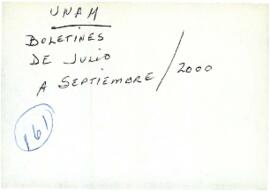 UNAM
BOLETINES
DE JULIO
A SEPTIEMBRE / 2000
161